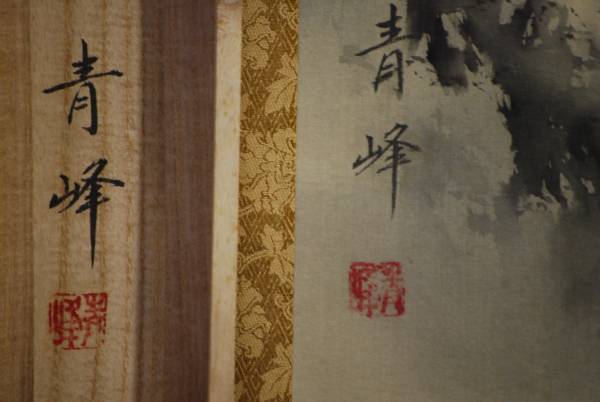 青峰
青峰